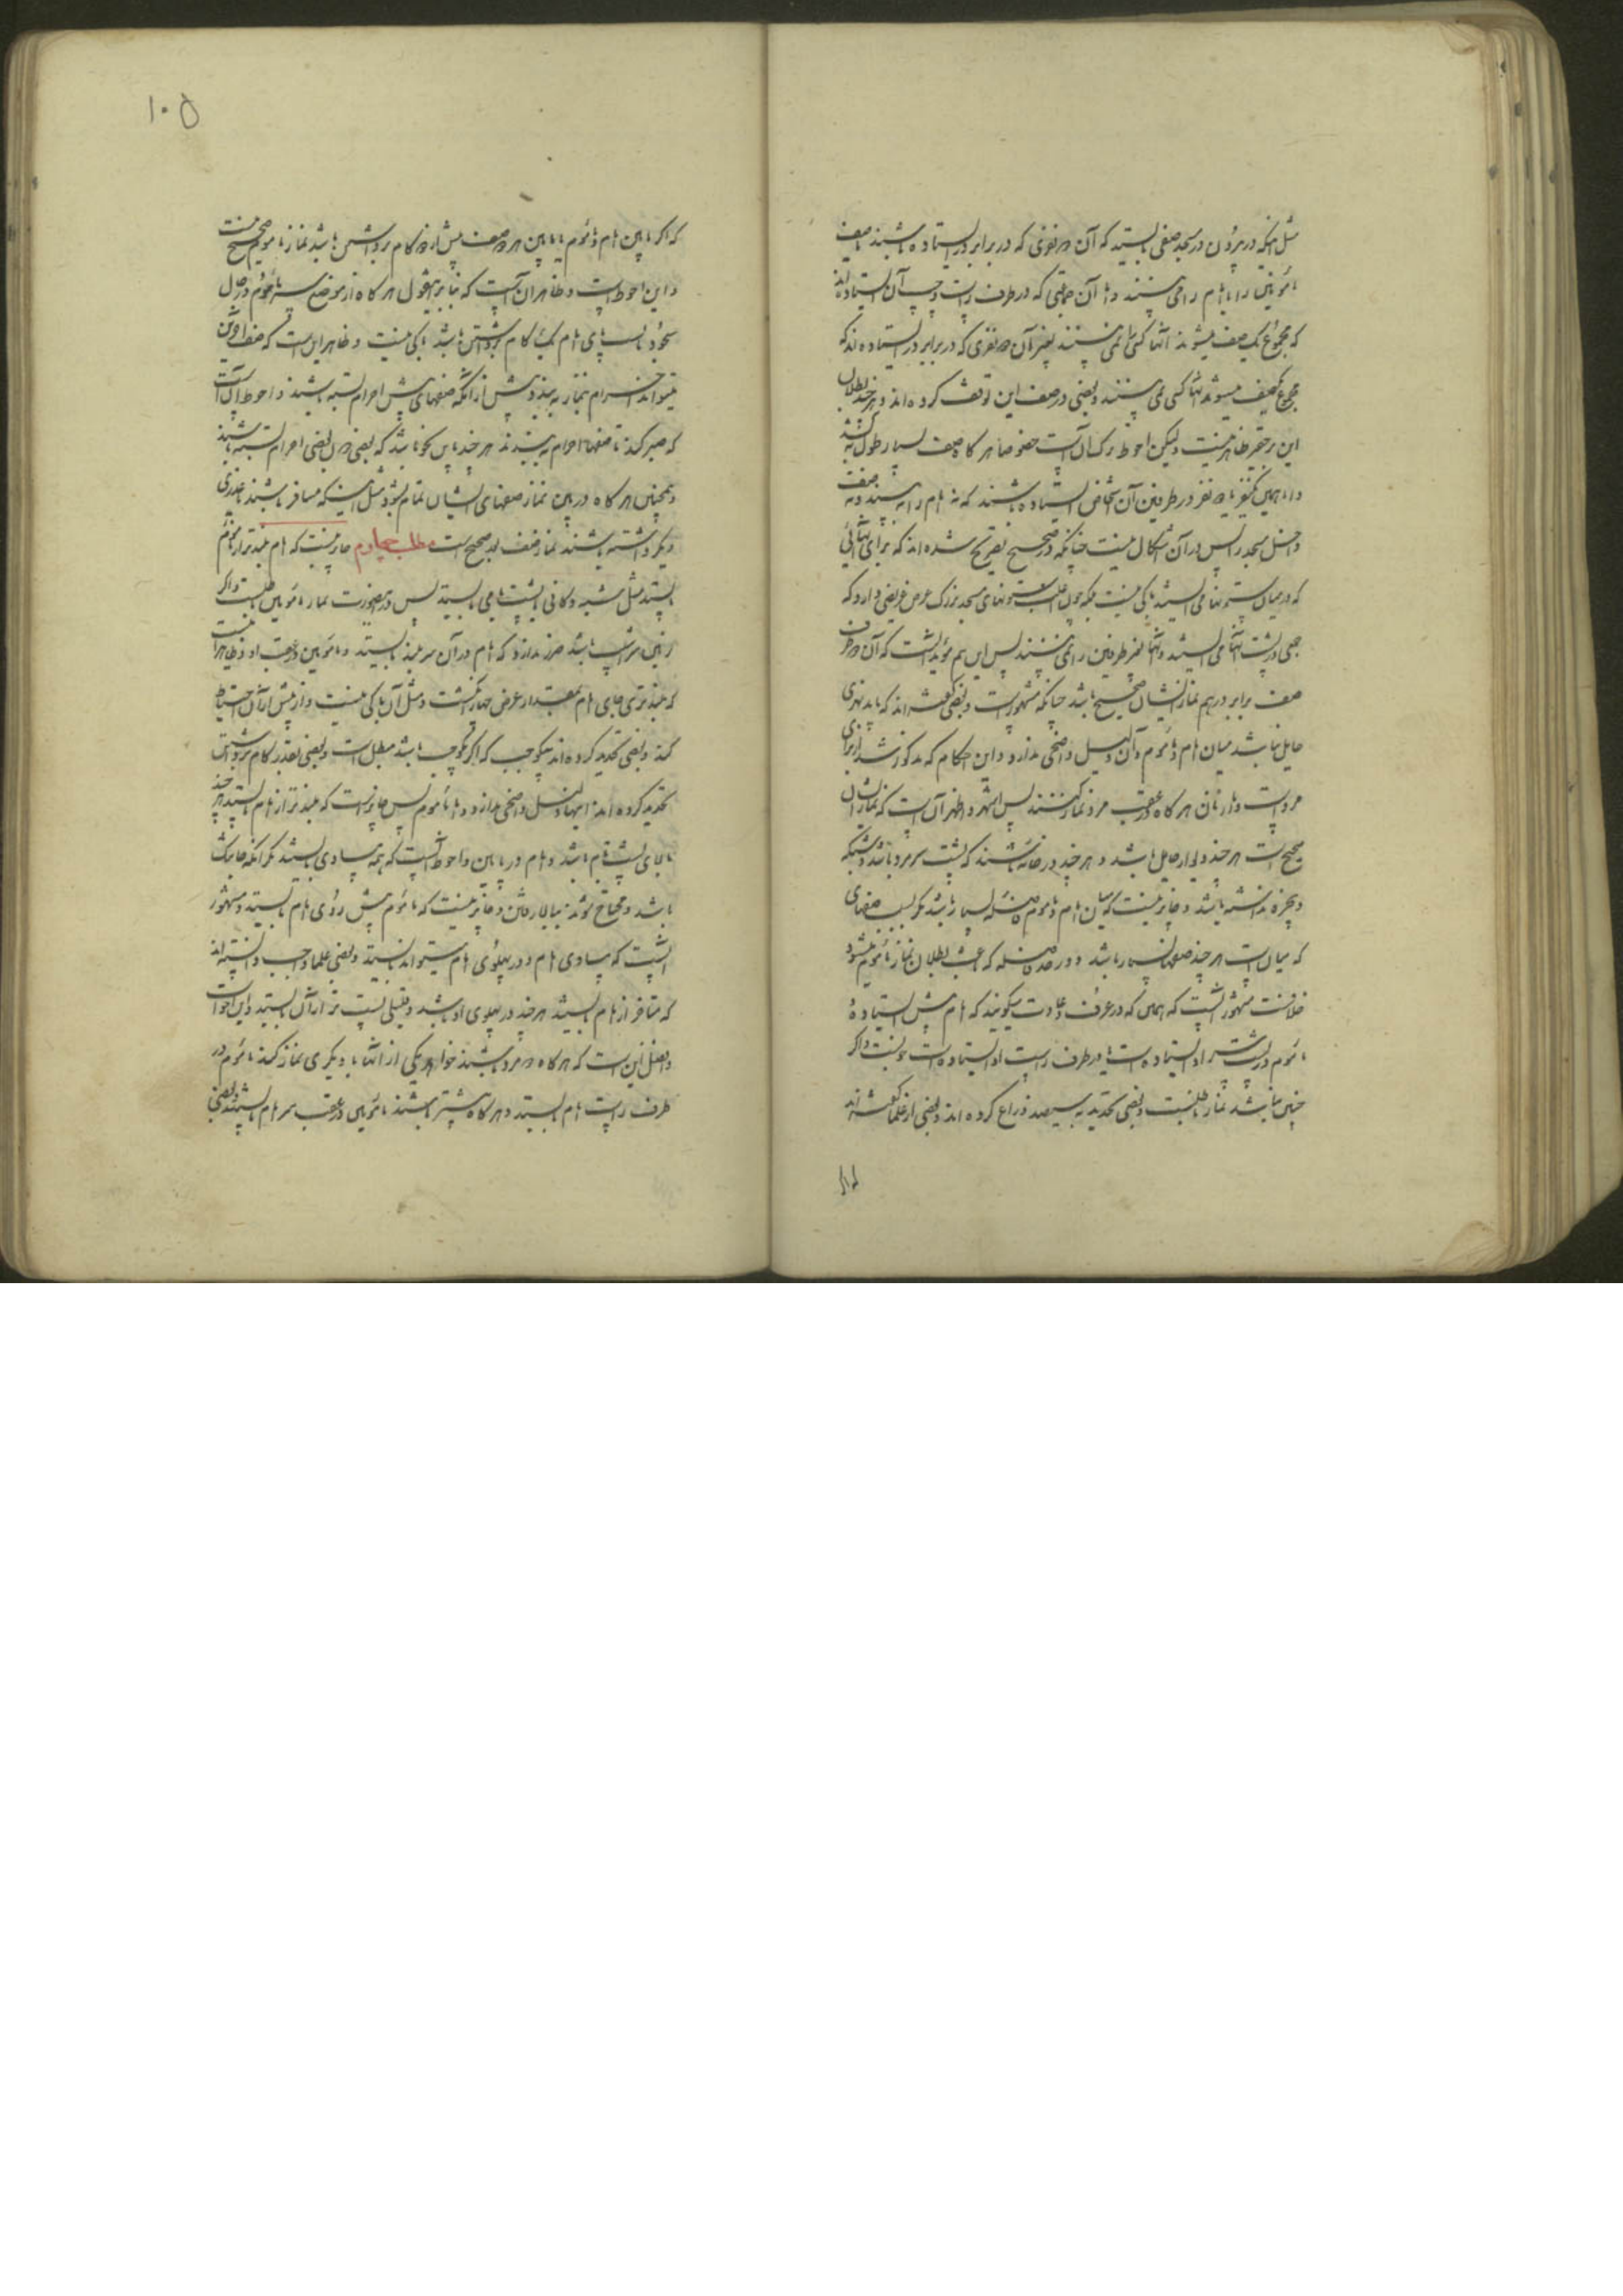 مثل اینکه در بیرون در مسجد صفی بایستد که آن دو نفری که در برابر در ایستاده باشند صف
مأمومین را یا امام را می‌بینند و اما آن جماعتی که در طرف راست و چپ آن ایستاده‌اند
که مجموع یک صف میشوند آنها کسی را نمی بینند بغیر آن دو نفری که در برابر در ایستاده‌اند که
مجموع یکصف میشوند آنها کسی نمی بینند و بعضی در صف این توقف کرده‌اند و هر چند بطلان
این بر حقیر ظاهر نیست و لیکن احوط ترک آن است خصوصا هر گاه صف بسیار طول باشد
و اما همین یکنفر یا دو نفر در طرفین آن شخص ایستاده باشند که نه امام را به بینند و نه صف
داخل مسجد را پس در آن اشکال نیست چنانکه در صحیح تصریح شده‌اند که برای آنهائی
که در میان ستونها می‌ایستند باکی نیست بلکه چون غالب ستونهای مسجد بزرگ عرض عریضی دارد که
جمعی در پشت آنها می ایستند و آنها بغیر طرفین را نمی بینند پس این هم مؤید آنست که آن دو طرف
صف برابر در هم نماز ایشان صحیح باشد چنانکه مشهور است و بعضی گفته‌اند که باید نهری
حایل نباشد میان امام و مأموم و آن دلیل واضحی ندارد و این احکام که مذکور شد از برای
مرد است و اما زنان هر گاه در عقب مرد نماز کنند پس اشهر و اظهر آن است که نماز ایشان
صحیح است هر چند دیوار حایل باشد و هر چند در خانه باشند که پشت سر مرد باشد و شبکه
و پنجره نداشته باشد و جایز نیست که میان امام و مأموم فاصله بسیار باشد مگر بسبب صفهای
که میان است هر چند صفها بسیار باشد و در حد فاصله که باعث بطلان نماز مأموم میشود
خلافست مشهور آنست که همین که در عرف و عادت میگویند که امام پیش ایستاده
مأموم در پشت سر او ایستاده است یا در طرف راست او ایستاده است خوبست و اگر
چنین نباشد نماز باطلست و بعضی تحدید به سیصد ذراع کرده‌اند و بعضی از علما گفته‌اند
۱۰۵
که اگر مابین امام و مأموم یا مابین هر دو صف بیش از دو گام برداشتن باشد نماز مأموم صحیح نیست
و این احوط است و ظاهر آن است که بنا بر این قول هر گاه از موضع سر مأموم در حال
سجود تا پای امام یک گام برداشتن باشد باکی نیست و ظاهر این است که صف آخرین
میتواند احرام بنماز به بندد پیش از آنکه صفهای پیش احرام بسته باشند و احوط آن است
که صبر کند تا صفها احرام به بندند هر چند باین نحو باشد که بعضی در حال بعضی احرام بسته باشند
و همچنین هر گاه در بین نماز صفهای ایشان تمام شود مثل اینکه مسافر باشند یا عذری
دیگر داشته باشند نماز صف بعد صحیح است مطلب چهارم جایز نیست که امام بلندتر از مأموم
بایستد مثل شبه دکانی یا پشت بامی بایستد پس در این صورت نماز مأمومین باطلست و اگر
زمین سراشیب باشد ضرر ندارد که امام در آن سر بلند بایستد و مأمومین در عقب او و ظاهر آنست
که بلندتری جای امام بمقدار عرض چهار انگشت و مثل آن باکی نیست و از بیش از آن احتیاط
کند و بعضی تحدید کرده‌اند بیکوجب که اگر یکوجب باشد مبطل است و بعضی بقدر گام برداشتن
تحدید کرده‌اند اینها دلیل واضحی ندارد و اما مأموم پس جایز است که بلندتر از امام بایستد هر چند
بالای پشت بام باشد و امام در پایین و احوط آنست که همه مساوی بایستند مگر آنکه جا تنگ
باشد و محتاج شوند ببالا رفتن و جایز نیست که مأموم پیش روی امام بایستد و مشهور
آنست که مساوی امام و در پهلوی امام میتواند بایستد و بعضی علما واجب دانسته‌اند
که متأخر از امام بایستند هر چند در پهلوی او باشد و قلیلی پست تر از آن بایستد و این احوط است
و افضل این است که هر گاه دو مرد باشند خواهد یکی از آنها با دیگری نماز کند مأموم در
طرف راست امام بایستد و هر گاه بیشتر باشند مأمومین در عقب سر امام بایستند و بعضی